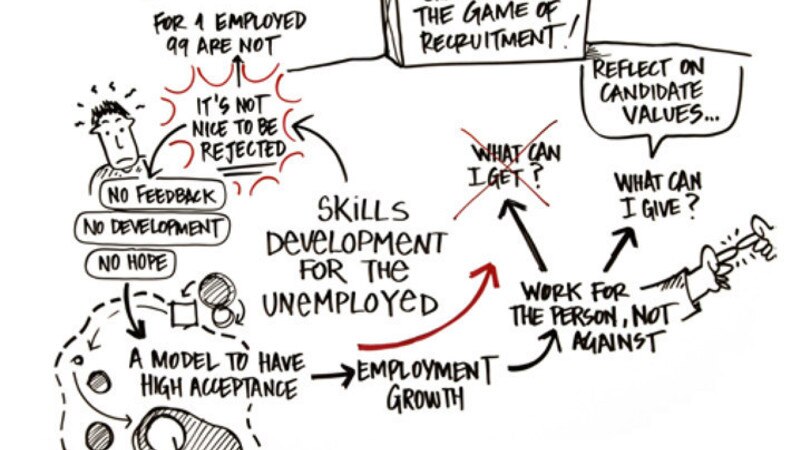 THE GAME OF
RECRUITMENT!
FOR 1 EMPLOYED
99 ARE NOT
IT'S NOT
NICE TO BE
REJECTED
NO FEEDBACK
NO DEVELOPMENT
NO HOPE
SKILLS
DEVELOPMENT
FOR THE
UNEMPLOYED
A MODEL TO HAVE
HIGH ACCEPTANCE
EMPLOYMENT
GROWTH
WORK FOR
THE PERSON, NOT
AGAINST
WHAT CAN
I GET?
WHAT CAN
I GIVE?
REFLECT ON
CANDIDATE
VALUES...